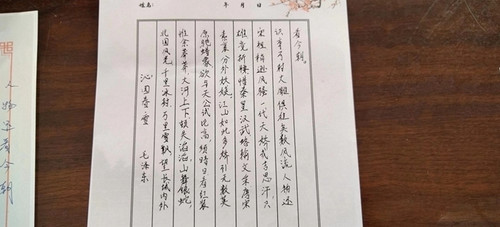 姓名： 年 月 日
沁园春·雪 毛泽东
北国风光，千里冰封，万里雪飘，望长城内外
惟余莽莽，大河上下，顿失滔滔，山舞银蛇，
原驰蜡象，欲与天公试比高，须晴日，看红装
素裹，分外妖娆，江山如此多娇，引无数英
雄竞折腰，惜秦皇汉武，略输文采，唐宗
宋祖，稍逊风骚，一代天骄，成吉思汗，只
识弯弓射大雕，俱往矣，数风流人物，还
看今朝。
人物还看今朝